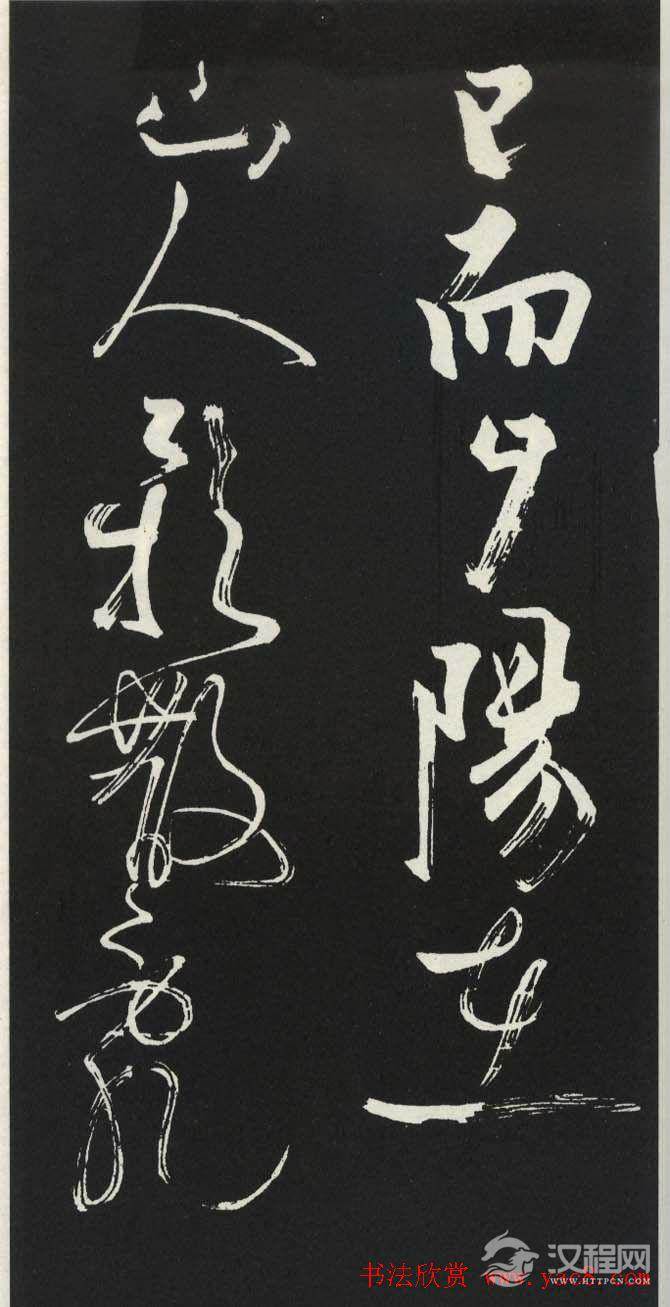 已而夕陽在
山人影散亂
书法欣赏
汉程网
WWW.HTTPCN.COM